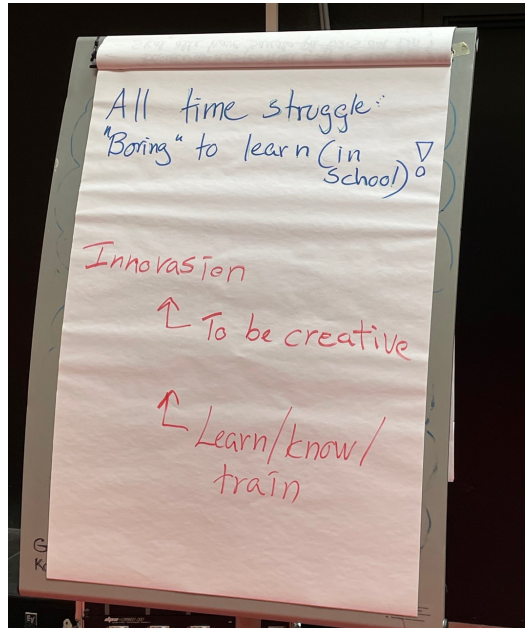 All time struggle:
"Boring" to learn (in
school)!
Innovasion
↑ To be creative
↑ Learn/know/
train
G
Ey